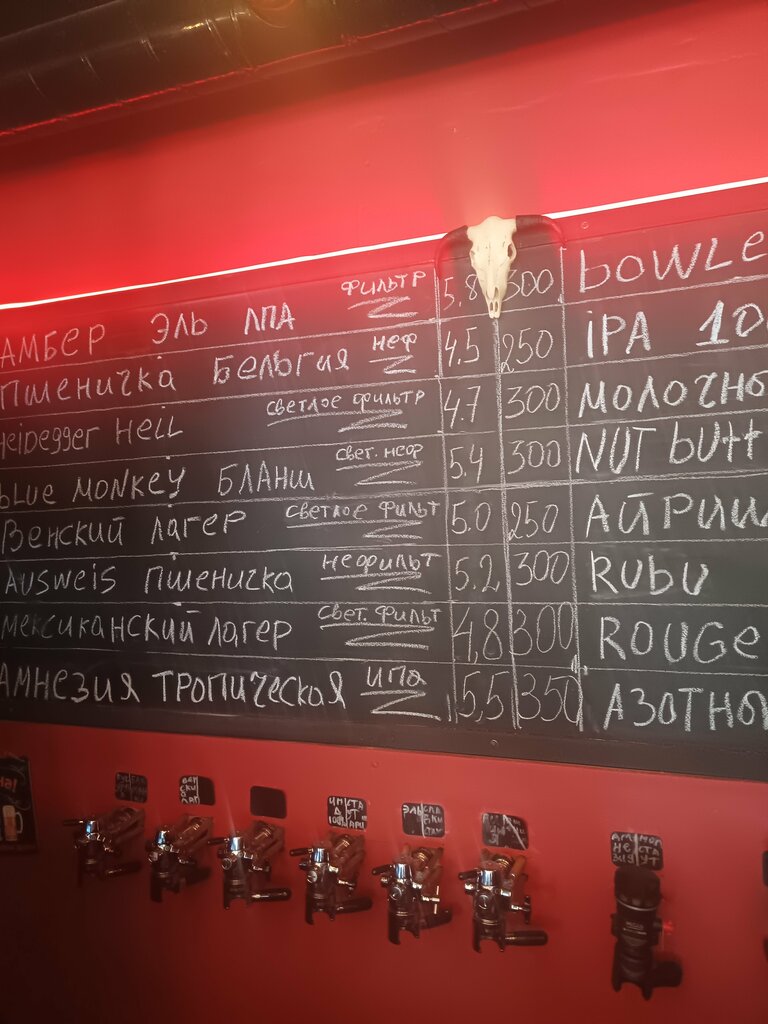 АМБЕР ЭЛЬ ЛПА ФИЛЬТР 5,8 300 BOWLE
ПШЕНИЧКА БЕЛЬГИЯ НЕФ 4.5 250 iPA
HEIDEGGER HELL СВЕТЛОЕ ФИЛЬТР 4.7 300 МОЛОЧНЫ
BLUE MONKEY БЛАНШ СВЕТ. НЕФ 5,4 300 NUT BUTT
ВЕНСКИЙ ЛАГЕР СВЕТЛОЕ ФИЛЬТ 5.0 250 АЙРИШ
AUSWEIS ПШЕНИЧКА НЕФИЛЬТ 5.2 300 RUBU
МЕКСИКАНСКИЙ ЛАГЕР СВЕТ. ФИЛЬТ 4,8 300 ROUGE
АМНЕЗИЯ ТРОПИЧЕСКАЯ ИПА 5,5 350 АЗОТНЫ